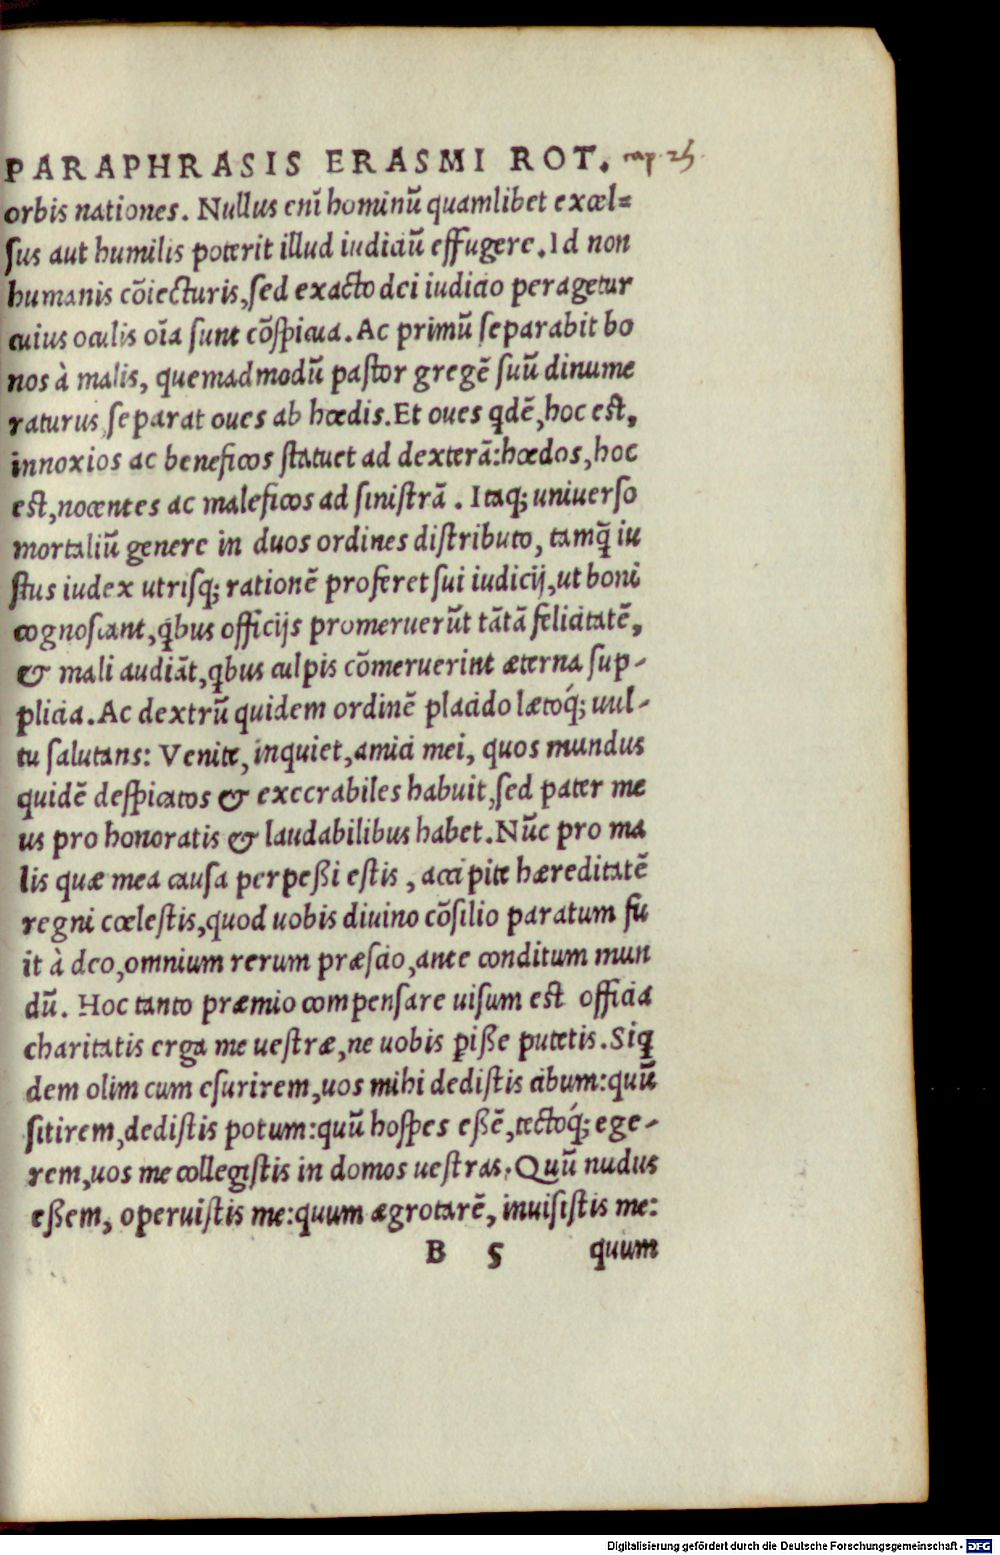 PARAPHRASIS ERASMI ROT. cap. 25.
orbis nationes. Nullus enĩ hominũ quamlibet excel=
ſus aut humilis poterit illud iudiciũ effugere. Id non
humanis cõiecturis, ſed exacto dei iudicio peragetur
cuius oculis oĩa ſunt cõſpicua. Ac primũ ſeparabit bo
nos à malis, quemadmodũ paſtor gregẽ ſuũ dinume
raturus ſeparat oues ab hœdis. Et oues qdẽ, hoc eſt,
innoxios ac beneficos ſtatuet ad dexterã: hœdos, hoc
eſt, nocentes ac maleficos ad ſiniſtrã. Itaq; uniuerſo
mortaliũ genere in duos ordines diſtributo, tamq̃ iu
ſtus iudex utriſq; rationẽ proferet ſui iudicij, ut boni
cognoſcant, q̃bus officijs promeruerũt tãtã felicitatẽ,
& mali audiãt, qbus culpis cõmeruerint æterna sup-
plicia. Ac dextrũ quidem ordinẽ placido lætoq́; uul-
tu ſalutans: Venite, inquiet, amici mei, quos mundus
quidẽ deſpicatos & execrabiles habuit, ſed pater me
us pro honoratis & laudabilibus habet. Nũc pro ma
lis quæ mea cauſa perpeßi eſtis, accipite hæreditatẽ
regni cœleſtis, quod uobis diuino cõſilio paratum fu
it à deo, omnium rerum præſcio, ante conditum mun
dũ. Hoc tanto præmio compenſare uiſum eſt officia
charitatis erga me ueſtræ, ne uobis ꝑiße putetis. Siq̃
dem olim cum eſurirem, uos mihi dediſtis cibum: quũ
ſitirem, dediſtis potum: quũ hoſpes eßẽ, tectoq́; ege-
rem, uos me collegiſtis in domos ueſtras. Quũ nudus
eßem, operuiſtis me: quum ægrotarẽ, inuiſiſtis me:
B 5 quum
Digitalisierung gefördert durch die Deutsche Forschungsgemeinschaft - DFG